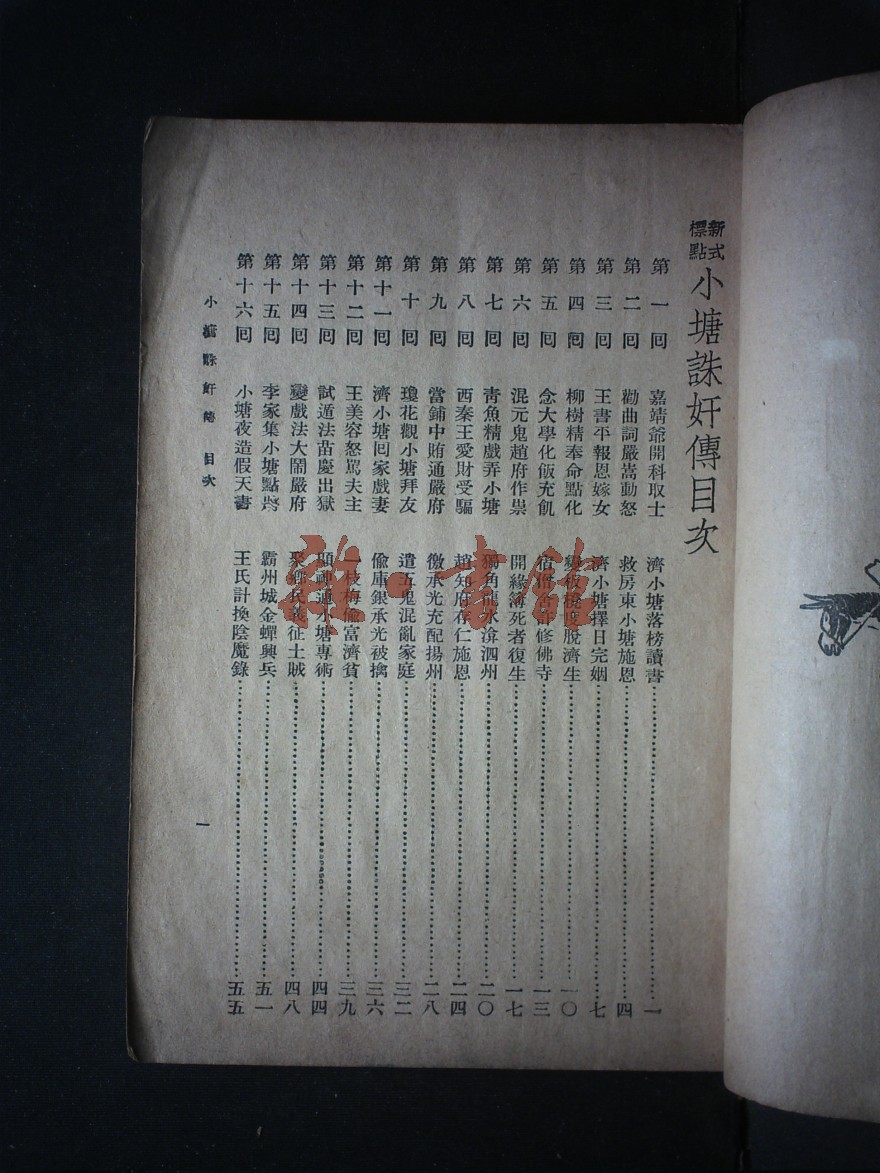 新式標點小塘誅奸傳目次
第一回 嘉靖爺開科取士 濟小塘落榜讀書 一
第二回 勸曲詞嚴嵩動怒 救房東小塘施恩 四
第三回 王書平報恩嫁女 濟小塘擇日完姻 七
第四回 柳樹精奉命點化 變板櫈度脫濟生 一〇
第五回 念大學化飯充飢 修佛寺 一三
第六回 混元鬼趙府作祟 開緣簿死者復生 一七
第七回 靑魚精戲弄小塘 獨角龍水渰泗州 二〇
第八回 西秦王愛財受騙 趙知府存仁施恩 二四
第九回 當鋪中賄通嚴府 徼承光充配揚州 二八
第十回 瓊花觀小塘拜友 遣五鬼混亂家庭 三二
第十一回 濟小塘回家戲妻 偸庫銀承光被擒 三六
第十二回 王美容怒駡夫主 一枝梅偸富濟貧 三九
第十三回 試遁法苗慶出獄 顯神通小塘專術 四四
第十四回 變戲法大鬧嚴府 聚鄉民義征土賊 四八
第十五回 李家集小塘點將 霸州城金蟬興兵 五一
第十六回 小塘夜造假天書 王氏計換陰魔錄 五五
小塘誅奸傳 目次
一
雜·書館